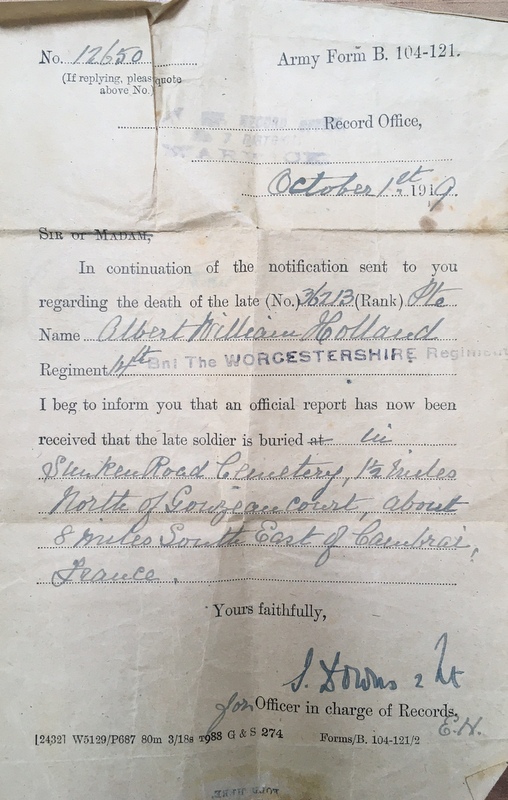 No. 12650
Army Form B. 104-121.
(If replying, please quote
above No.)
Record Office,
October 1st 1919
SIR or MADAM,
In continuation of the notification sent to you
regarding the death of the late (No.) 36213 (Rank) Pte
Name Albert William Holland
Regiment 4th Bn: The WORCESTERSHIRE Regiment
I beg to inform you that an official report has now been
received that the late soldier is buried at in
Sunken Road Cemetery, 1½ miles
North of Gouzeaucourt, about
8 miles South East of Cambrai,
France.
Yours faithfully,
S. Downs 2 Lt
for Officer in charge of Records.
E.H.
[2432] W5129/P687 80m 3/18s T988 G & S 274 Forms/B. 104-121/2